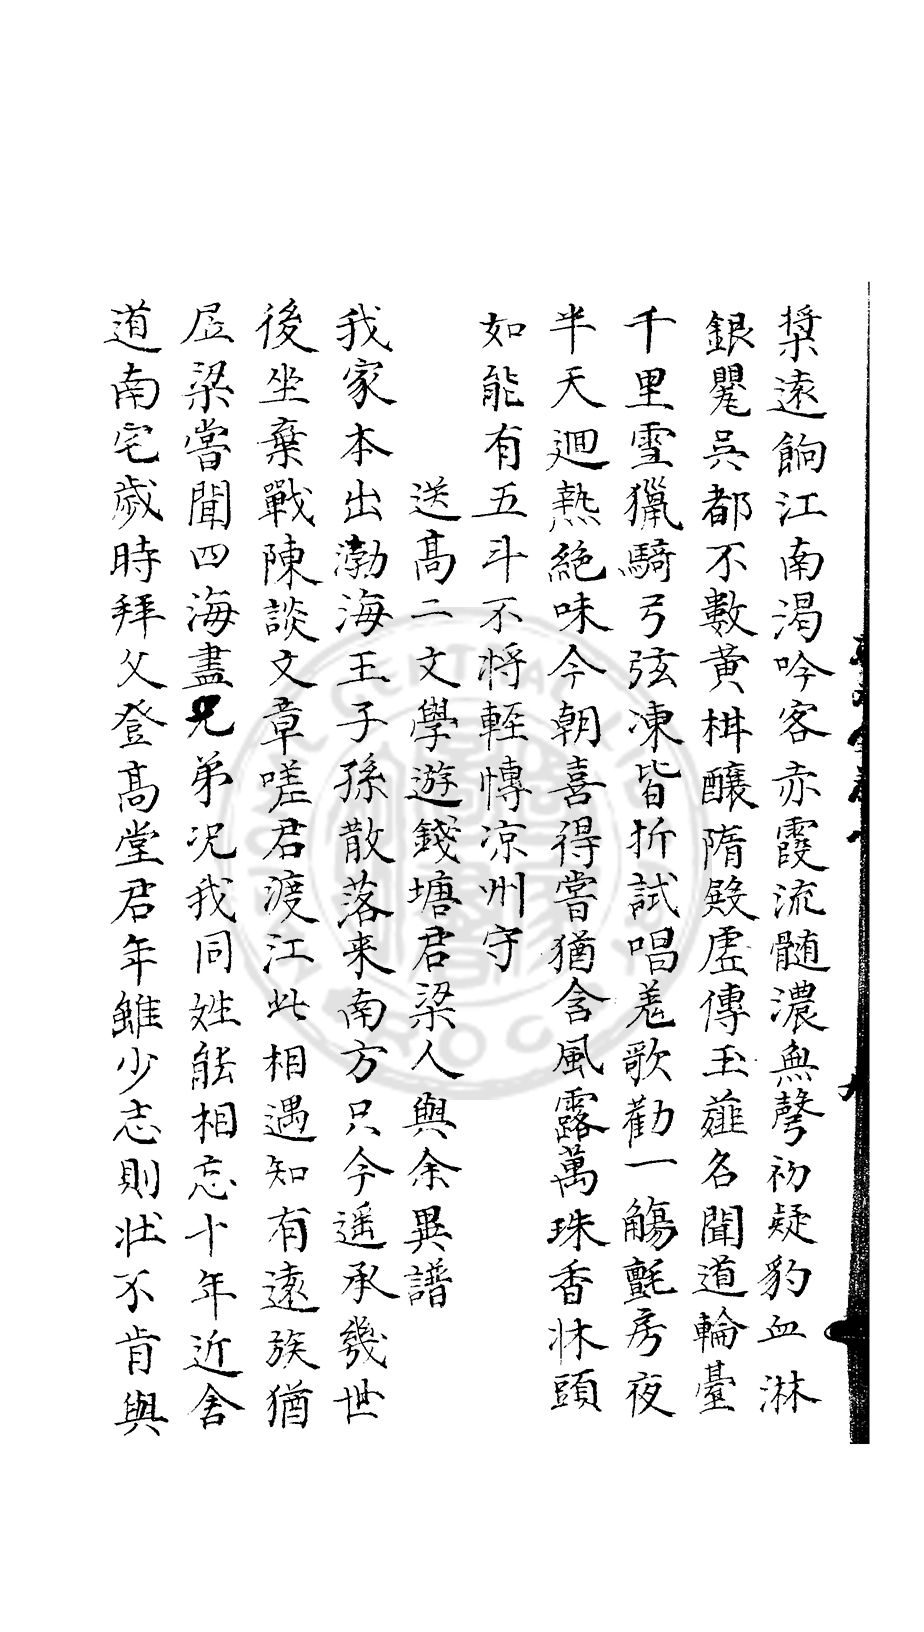 槳遠餉江南渴吟客赤霞流髓濃無聲初疑豹血淋
銀甖吳都不數黃柑釀隋殿虛傳玉薤名聞道輪臺
千里雪獵騎弓弦凍皆折試唱羌歌勸一觴氈房夜
半天迴熱絕味今朝喜得嘗猶含風露萬珠香牀頭
如能有五斗不將輕慱凉州守
送髙二文學遊錢塘君梁人與余異譜
我家本出渤海王子孫散落来南方只今遥承幾世
後坐棄戰陳談文章嗟君渡江此相遇知有遠族猶
居梁嘗聞四海盡兄弟况我同姓能相忘十年近舍
道南宅歲時拜父登髙堂君年雖少志則壯不肯與